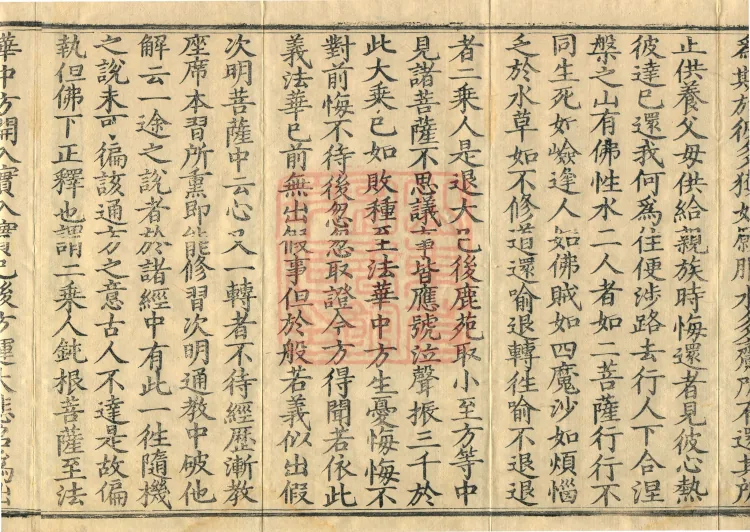 止供養父母供給親族時悔還者見彼心熱
彼達已還我何為住便涉路去行人下合涅
槃之山有佛性水二人者如二菩薩行行不
同生死如嶮逢人如佛賊如四魔沙如煩惱
乏於水草如不修道還喻退轉往喻不退退
者二乘人是退大已後鹿苑取小至方等中
見諸菩薩不思議事皆應號泣聲振三千於
此大乘已如敗種至法華中方生憂悔悔不
對前悔不待後忽忽取證今方得聞若依此
義法華已前無出假事但於般若義似出假
次明菩薩中云心又一轉者不待經歷漸教
座席本習所熏即能修習次明通教中破他
解云一途之說者於諸經中有此一往隨機
之說未可徧該通方之意古人不達是故偏
執但佛下正釋也謂二乘人鈍根菩薩至法
華中方開入實入實已後方運大悲名為出